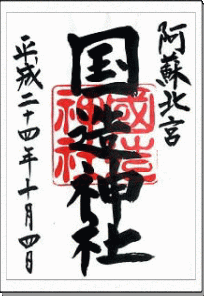 阿蘇北宮
国造神社
國造神社
平成二十四年十月四日